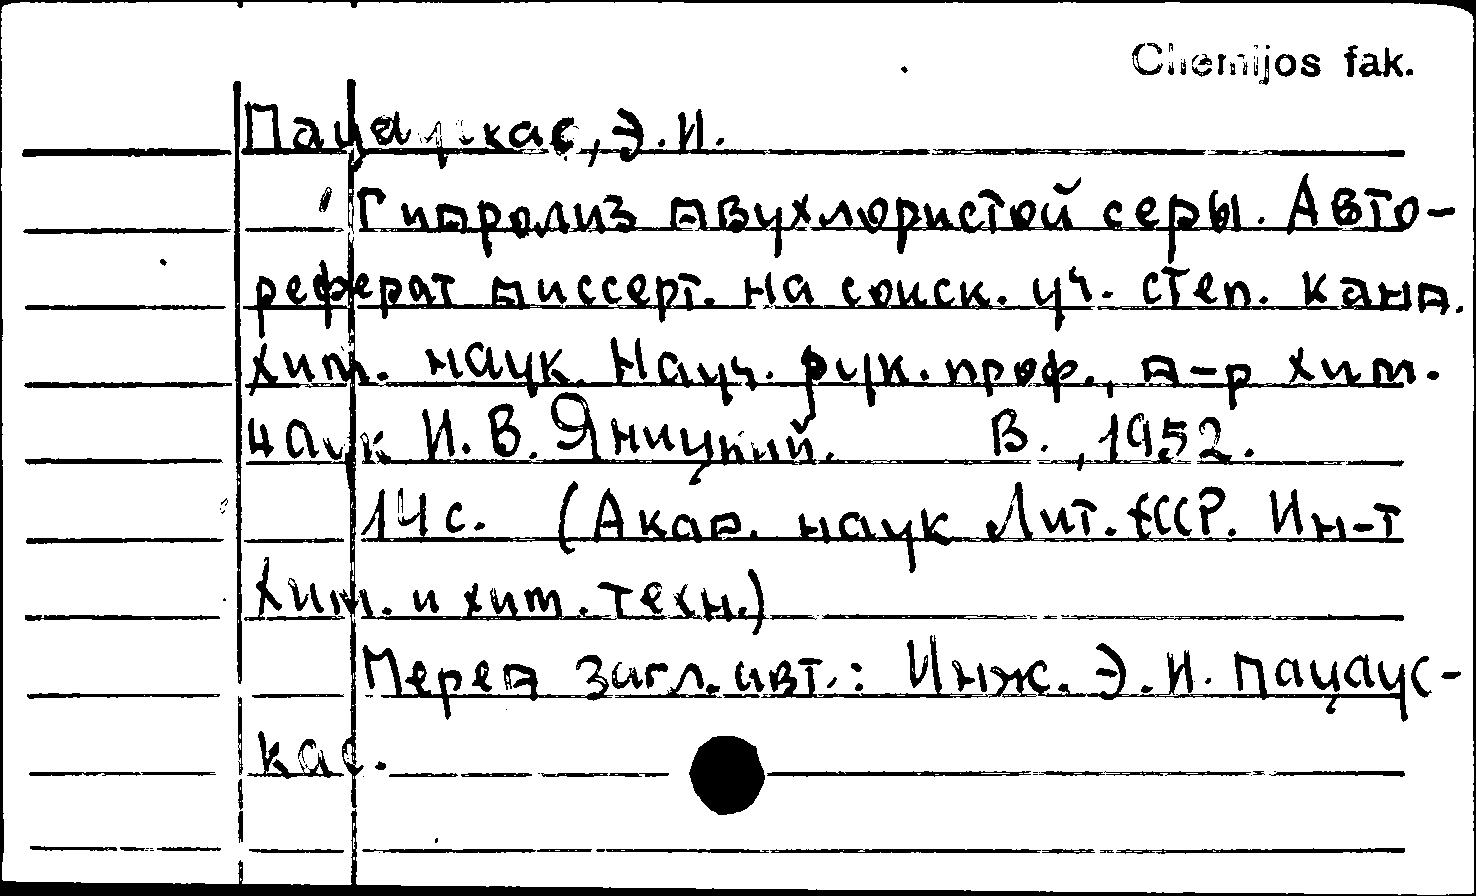 Chemijos fak.
Пацаускас, Э. И.
Гидролиз двухлористой серы. Авто-
реферат диссерт. на соиск. уч. степ. канд.
хим. наук. Науч. рук. проф., д-р хим.
наук И. В. Яницкий. В., 1952.
14 с. (Акад. наук Лит. ССР. Ин-т
хим. и хим. техн.)
Перед загл. авт.: Инж. Э. И. Пацаус-
кас.